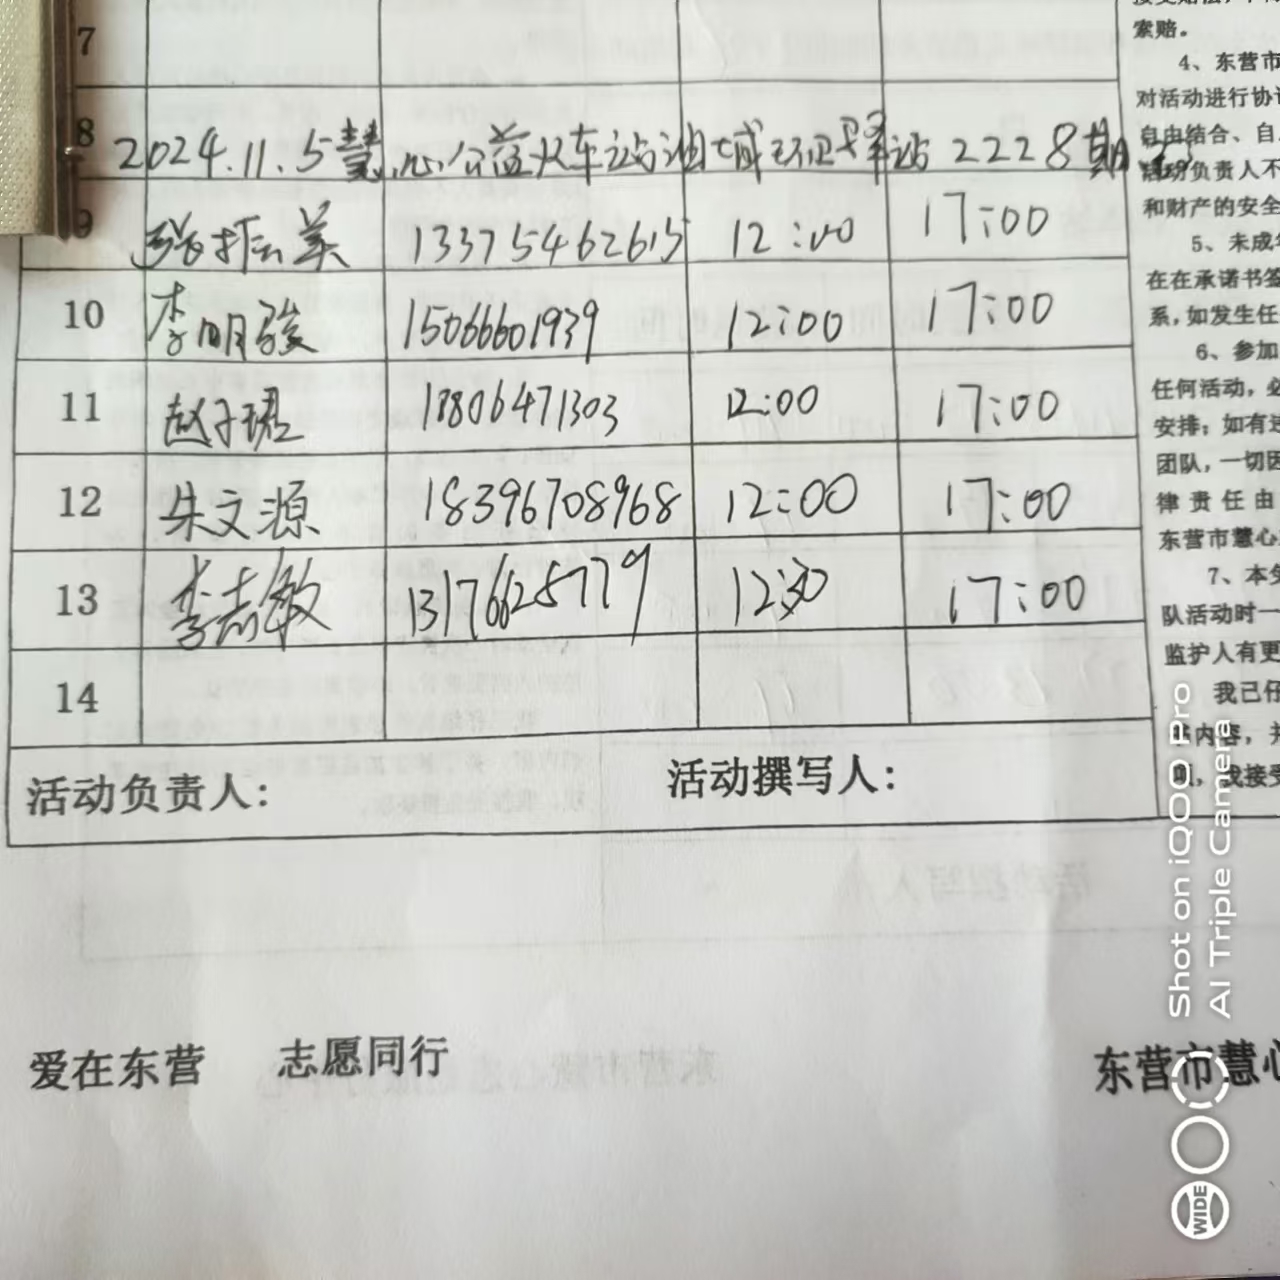 7
8 2024.11.5慧心公益火车站油城环卫驿站2228期
9 张振美 13375462615 12:00 17:00
10 李明骏 15066601939 12:00 17:00
11 赵子珺 18806471303 12:00 17:00
12 朱文源 18396708968 12:00 17:00
13 李志敏 13176625779 17:00
14
活动负责人: 活动撰写人:
爱在东营 志愿同行
东营市慧心
索赔。
4、东营市
对活动进行协议
自由结合、自
活动负责人不
和财产的安全
5、未成年
在在承诺书签
系,如发生任
6、参加
任何活动,必
安排;如有违
团队,一切因
律责任由
东营市慧心
7、本免
队活动时一
监护人有更
我已仔
书内容,并
,我接受
Shot on iQOO Pro
AI Triple Camera
WIDE